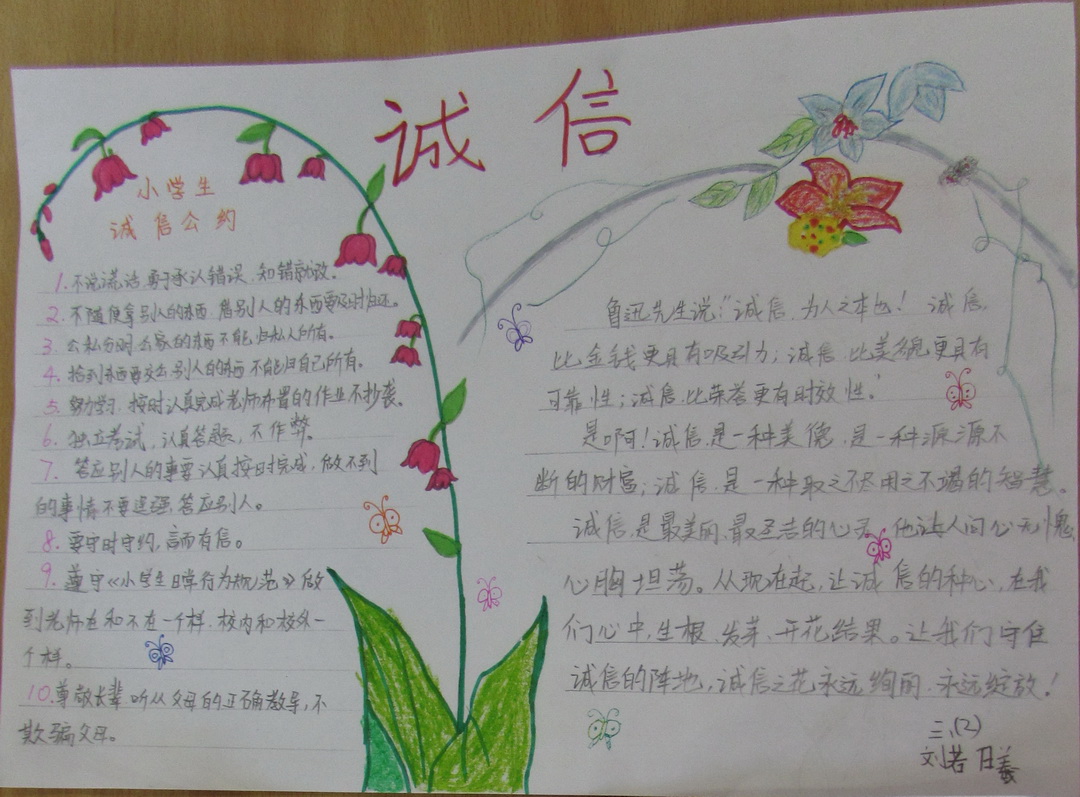 诚 信
小学生
诚信公约
1. 不说谎话,勇于承认错误,知错就改。
2. 不随便拿别人的东西,借别人的东西要及时归还。
3. 公私分明,公家的东西不能归私人所有。
4. 拾到东西要交公,别人的东西不能归自己所有。
5. 努力学习,按时认真完成老师布置的作业不抄袭。
6. 独立考试,认真答题,不作弊。
7. 答应别人的事要认真按时完成,做不到
的事情不要逞强答应别人。
8. 要守时守约,言而有信。
9. 遵守《小学生日常行为规范》做
到老师在和不在一个样,校内和校外一
个样。
10. 尊敬长辈 听从父母的正确教导,不
欺骗父母。
鲁迅先生说:“诚信,为人之本也! 诚信,
比金钱更具有吸引力;诚信,比美貌更具有
可靠性;诚信,比荣誉更有时效性。”
是啊!诚信,是一种美德,是一种源源不
断的财富;诚信,是一种取之不尽用之不竭的智慧。
诚信,是最美丽,最圣洁的心灵,他让人问心无愧,
心胸坦荡。从现在起,让诚信的种心,在我
们心中,生根、发芽、开花结果。让我们守住
诚信的阵地,诚信之花永远绚丽,永远绽放!
三、(2)
刘若